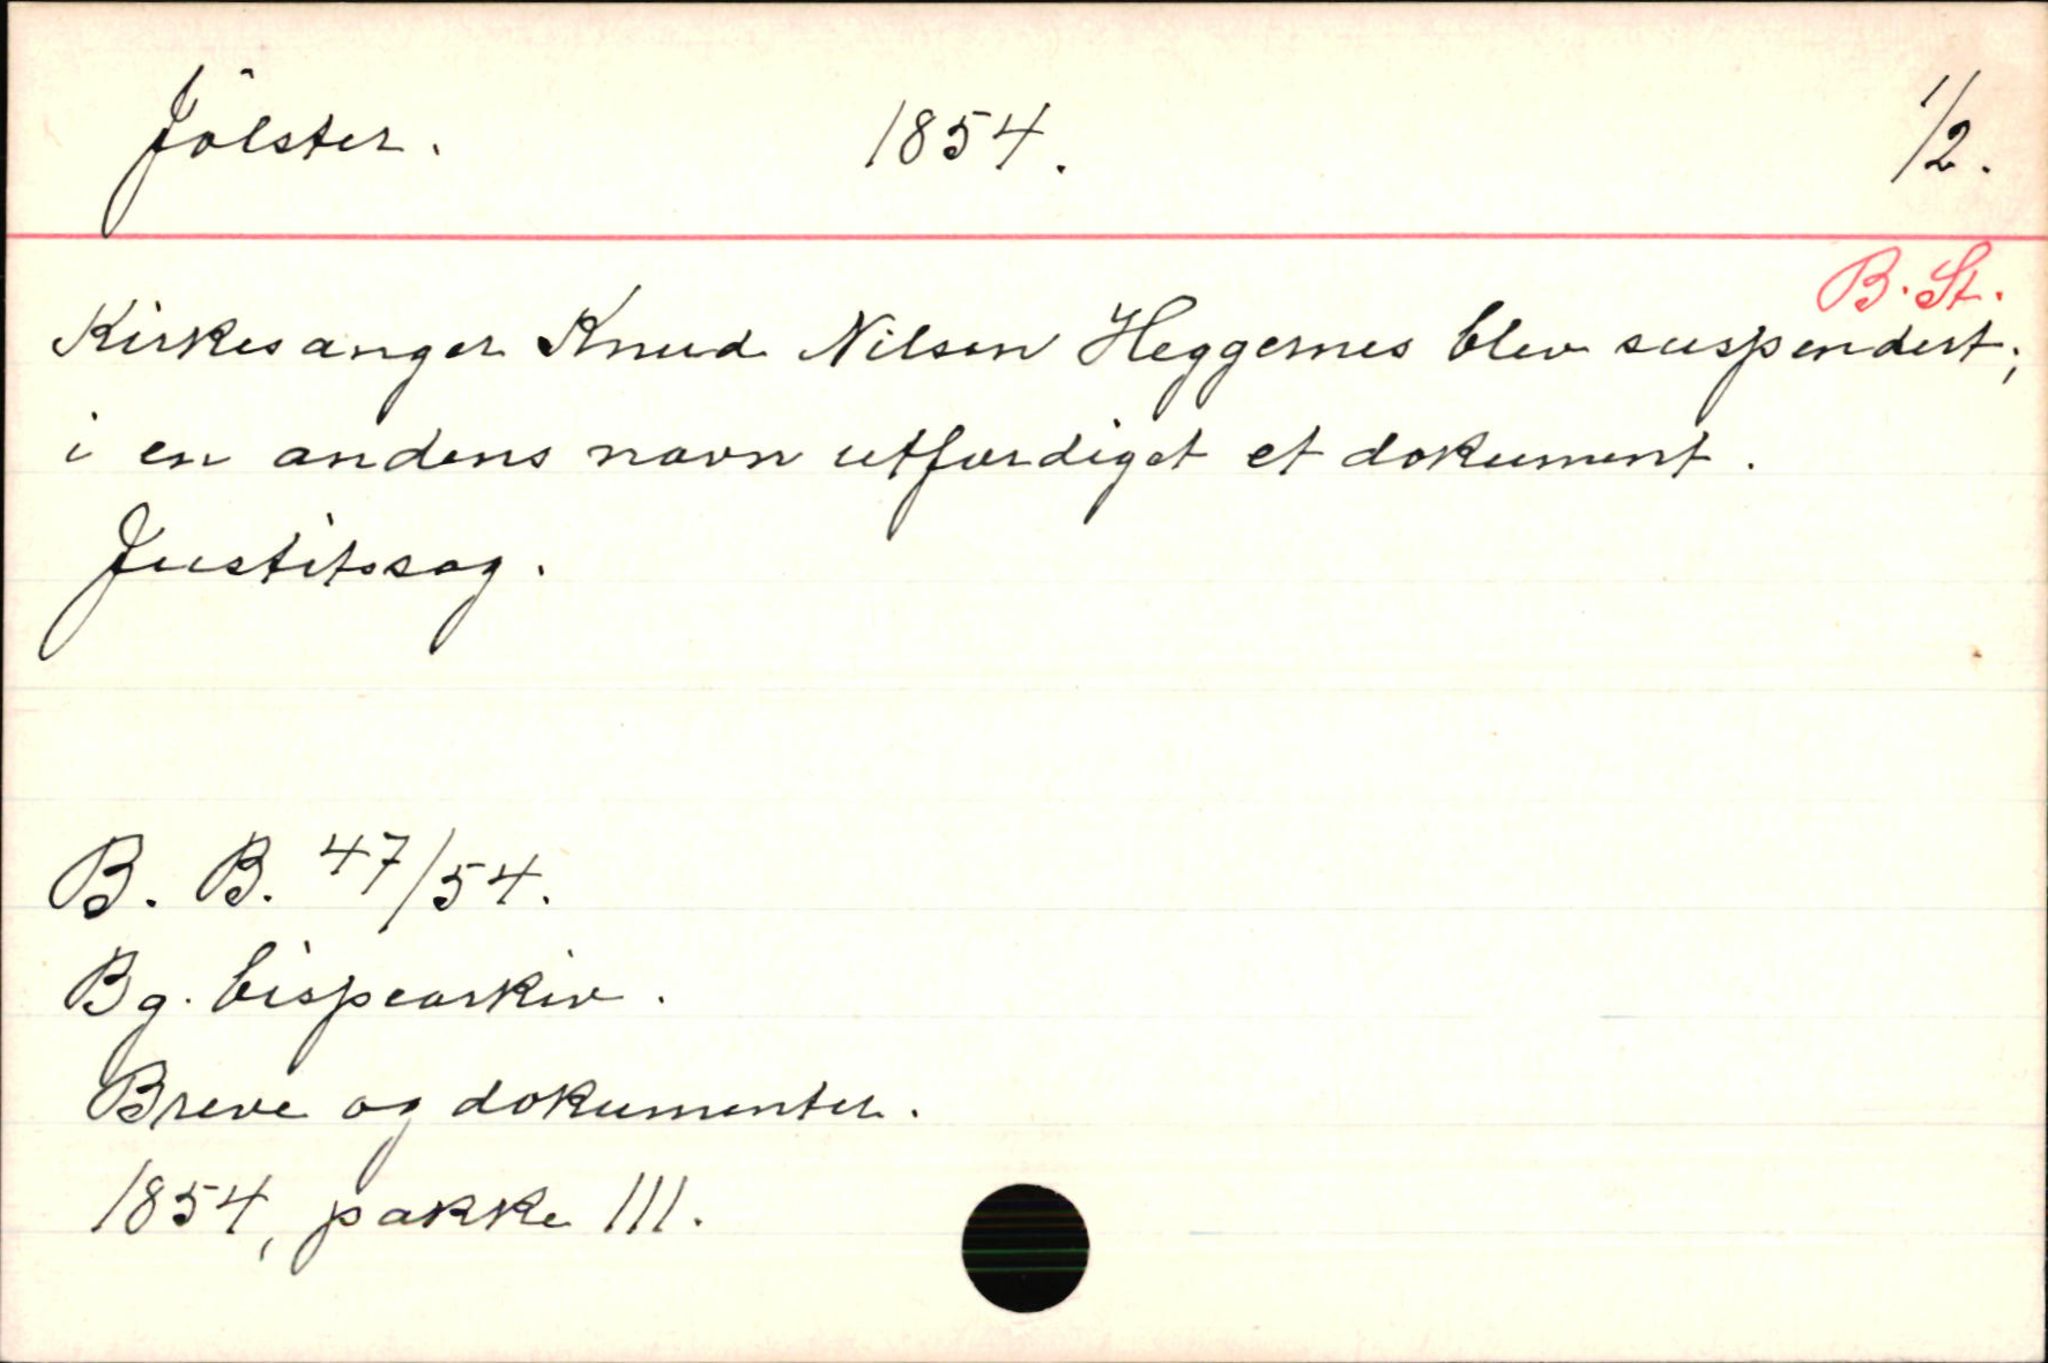 Jölster. 1854. 1/2.
B. St.
Kirkesanger Knud Nilsen Heggernes blev suspendert;
i en andens navn utfærdiget et dokument.
Justitssag.
B. B. 47/54.
Bg. bispearkiv.
Breve og dokumenter.
1854, pakke III.